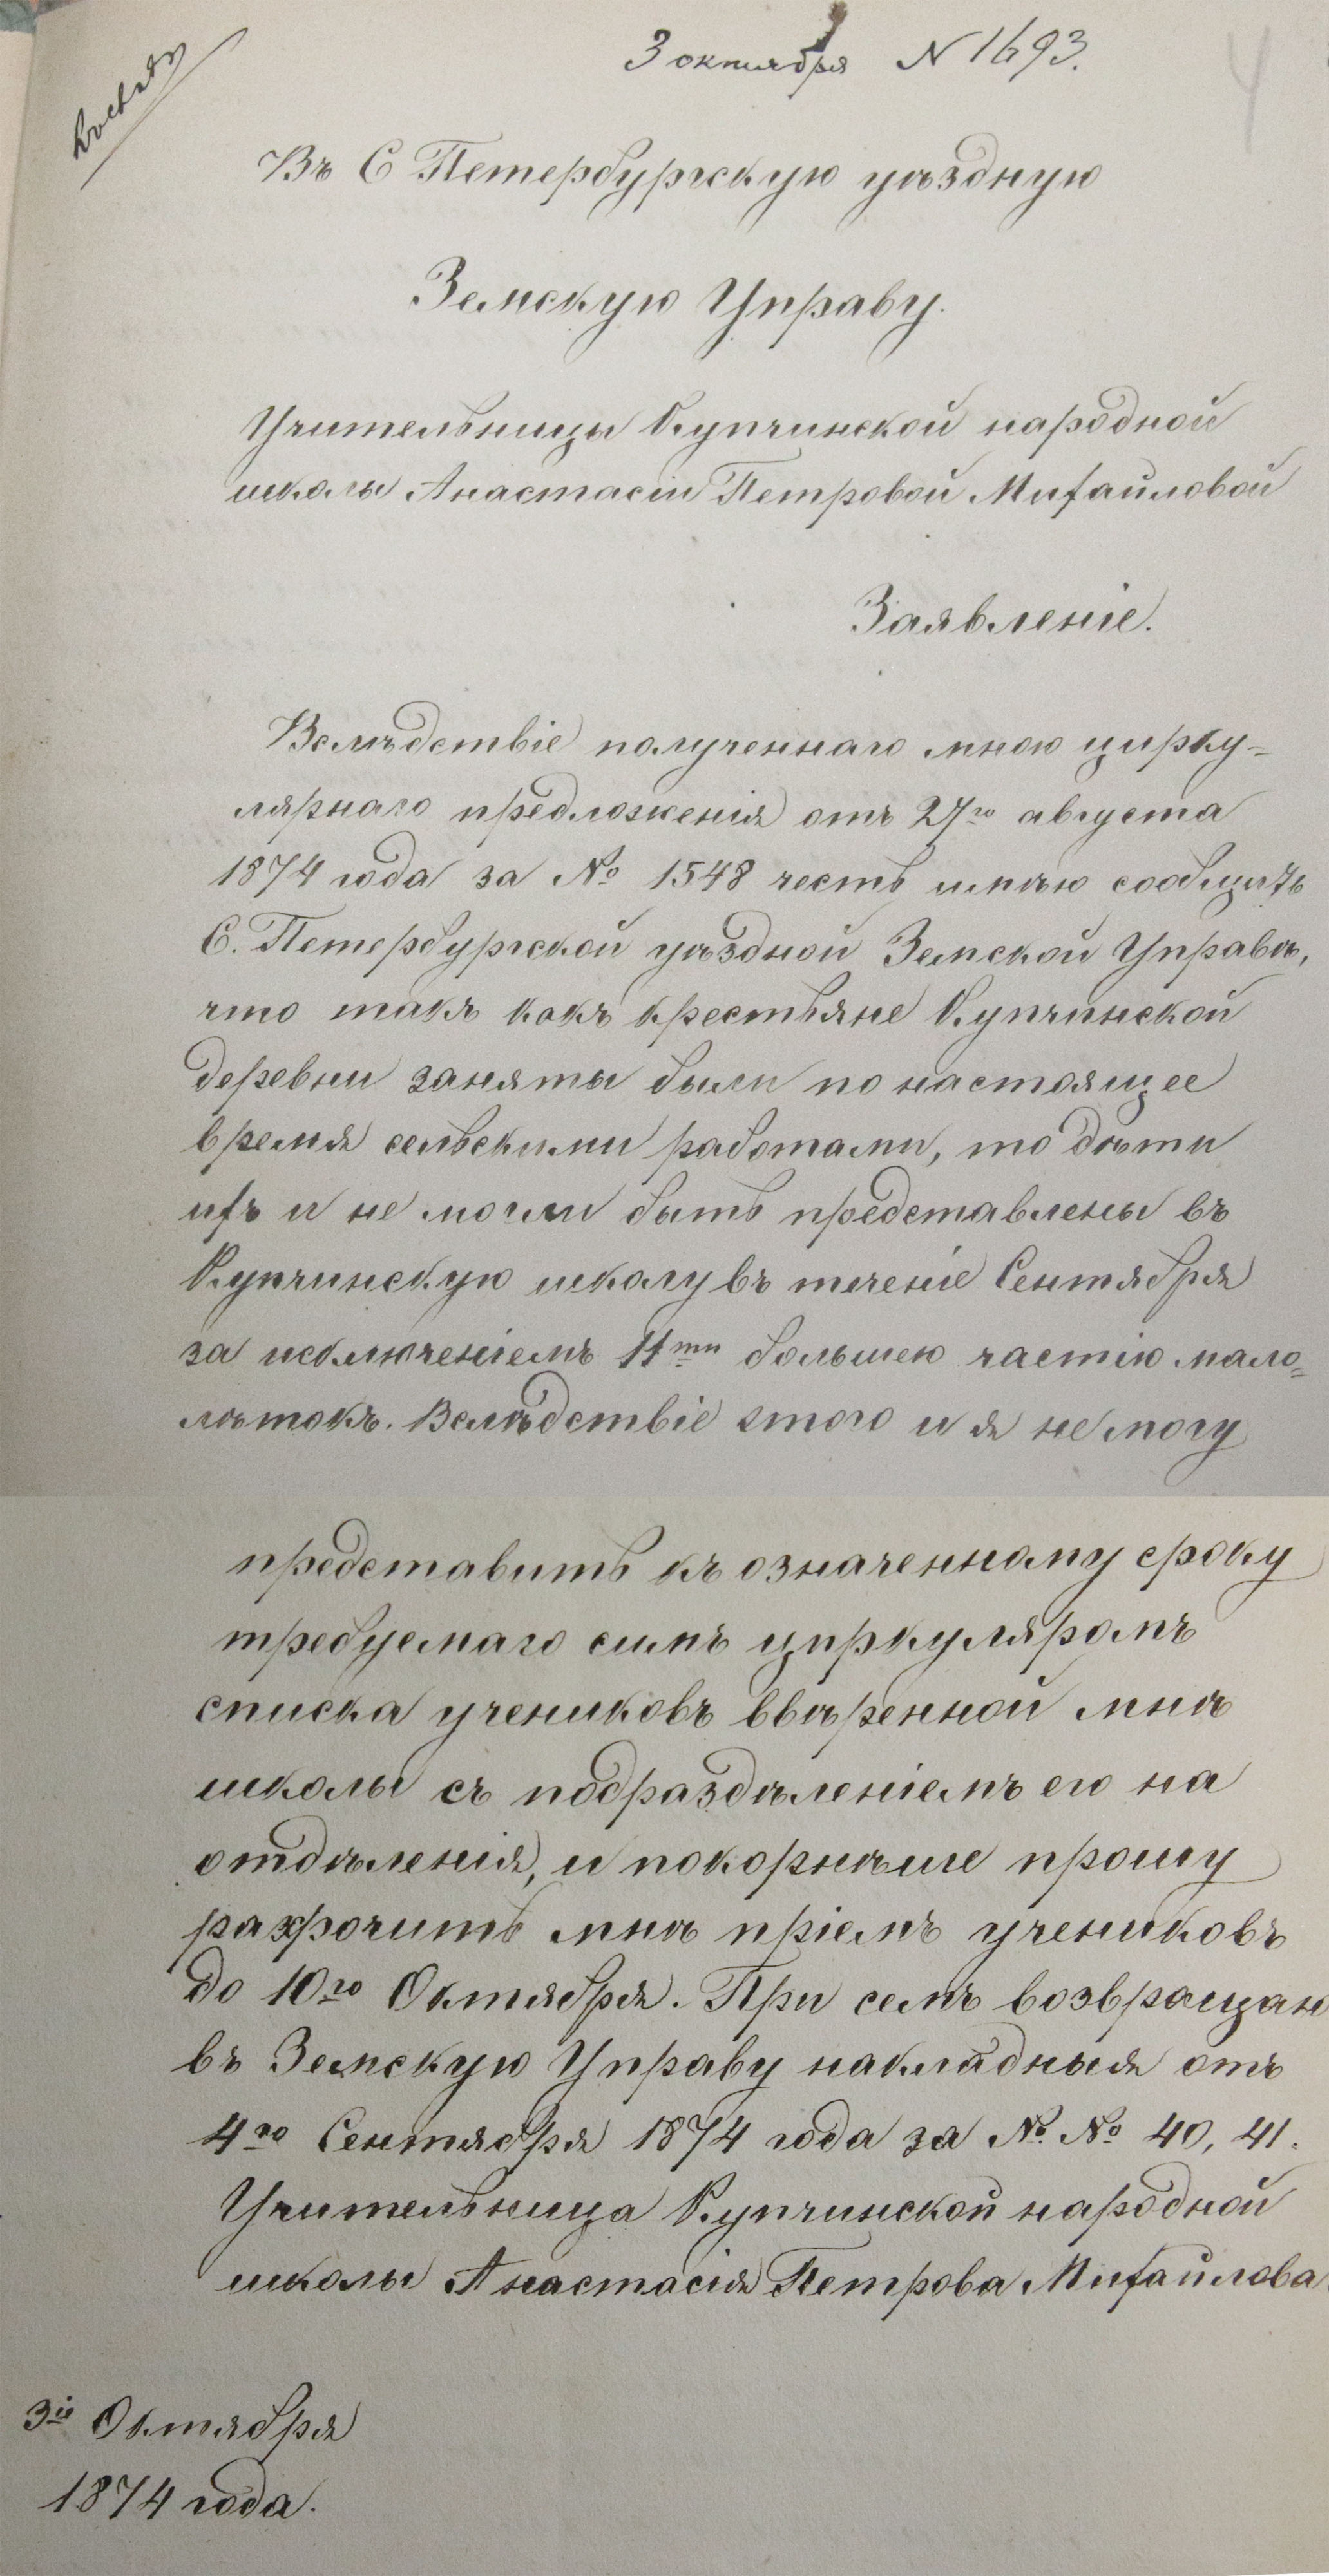 3 октября N 1693.
Въ С Петербургскую уѣздную
Земскую Управу.
Учительницы Купчинской народной
школы Анастасіи Петровой Михайловой
Заявленіе.
Вслѣдствіе полученнаго мною цирку-
лярнаго предложенія отъ 27го августа
1874 года за № 1548 честь имѣю сообщить
С. Петербургской уѣздной Земской Управѣ,
что такъ какъ крестьяне Купчинской
деревни заняты были по настоящее
время сельскими работами, то дѣти
ихъ и не могли быть представлены въ
Купчинскую школу въ теченіе Сентября
за исключеніемъ 11ти большею частію мало-
лѣтокъ. Вслѣдствіе этого и я не могу
представить къ означенному сроку
требуемаго симъ циркуляромъ
списка учениковъ ввѣренной мнѣ
школы съ подраздѣленіемъ его на
отдѣленія, и покорнѣше прошу
разсрочить мнѣ пріемъ учениковъ
до 10го Октября. При семъ возвращаю
въ Земскую Управу накладныя отъ
4го Сентября 1874 года за №. № 40, 41.
Учительница Купчинской народной
школы Анастасія Петрова Михайлова
3іе Октября
1874 года.